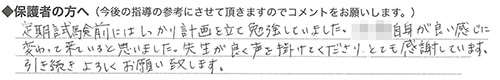 ◆保護者の方へ（今後の指導の参考にさせて頂きますのでコメントをお願いします。）
定期試験前にはしっかり計画を立て勉強していました。 自身が良い感じに
変わって来ていると思いました。先生が良く声を掛けてくださり、とても感謝しています。
引き続きよろしくお願い致します。